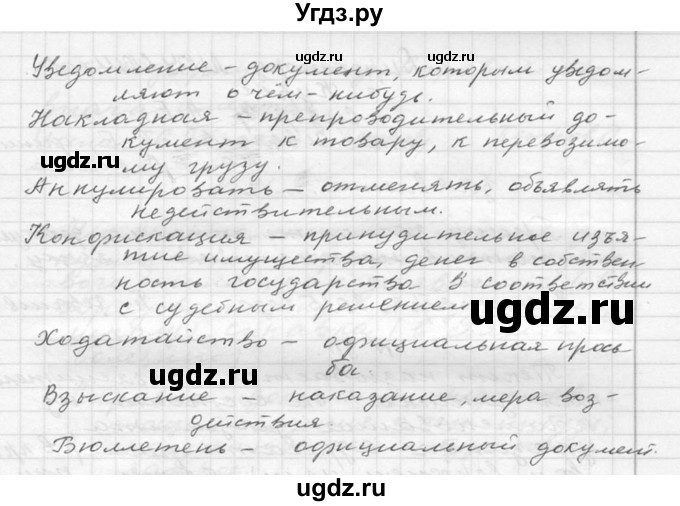 Угдз.ру
ugdz.ru ugdz.ru
Уведомление – документ, которым уведом-
ляют о чём-нибудь.
Накладная – препроводительный до-
ugdz.ru
кумент к товару, к перевозимо-
ugdz.ru
му грузу.
Аннулировать – отменять, объявлять
недействительным.
Конфискация – принудительное изъя-
тие имущества, денег в собствен-
ность государства в соответствии
с судебным решением
ugdz.ru
Ходатайство – официальная прось
ба.
ugdz.ru
Взыскание – наказание, мера воз-
действия.
ugdz.ru
Бюллетень – официальный документ.
ugdz.ru